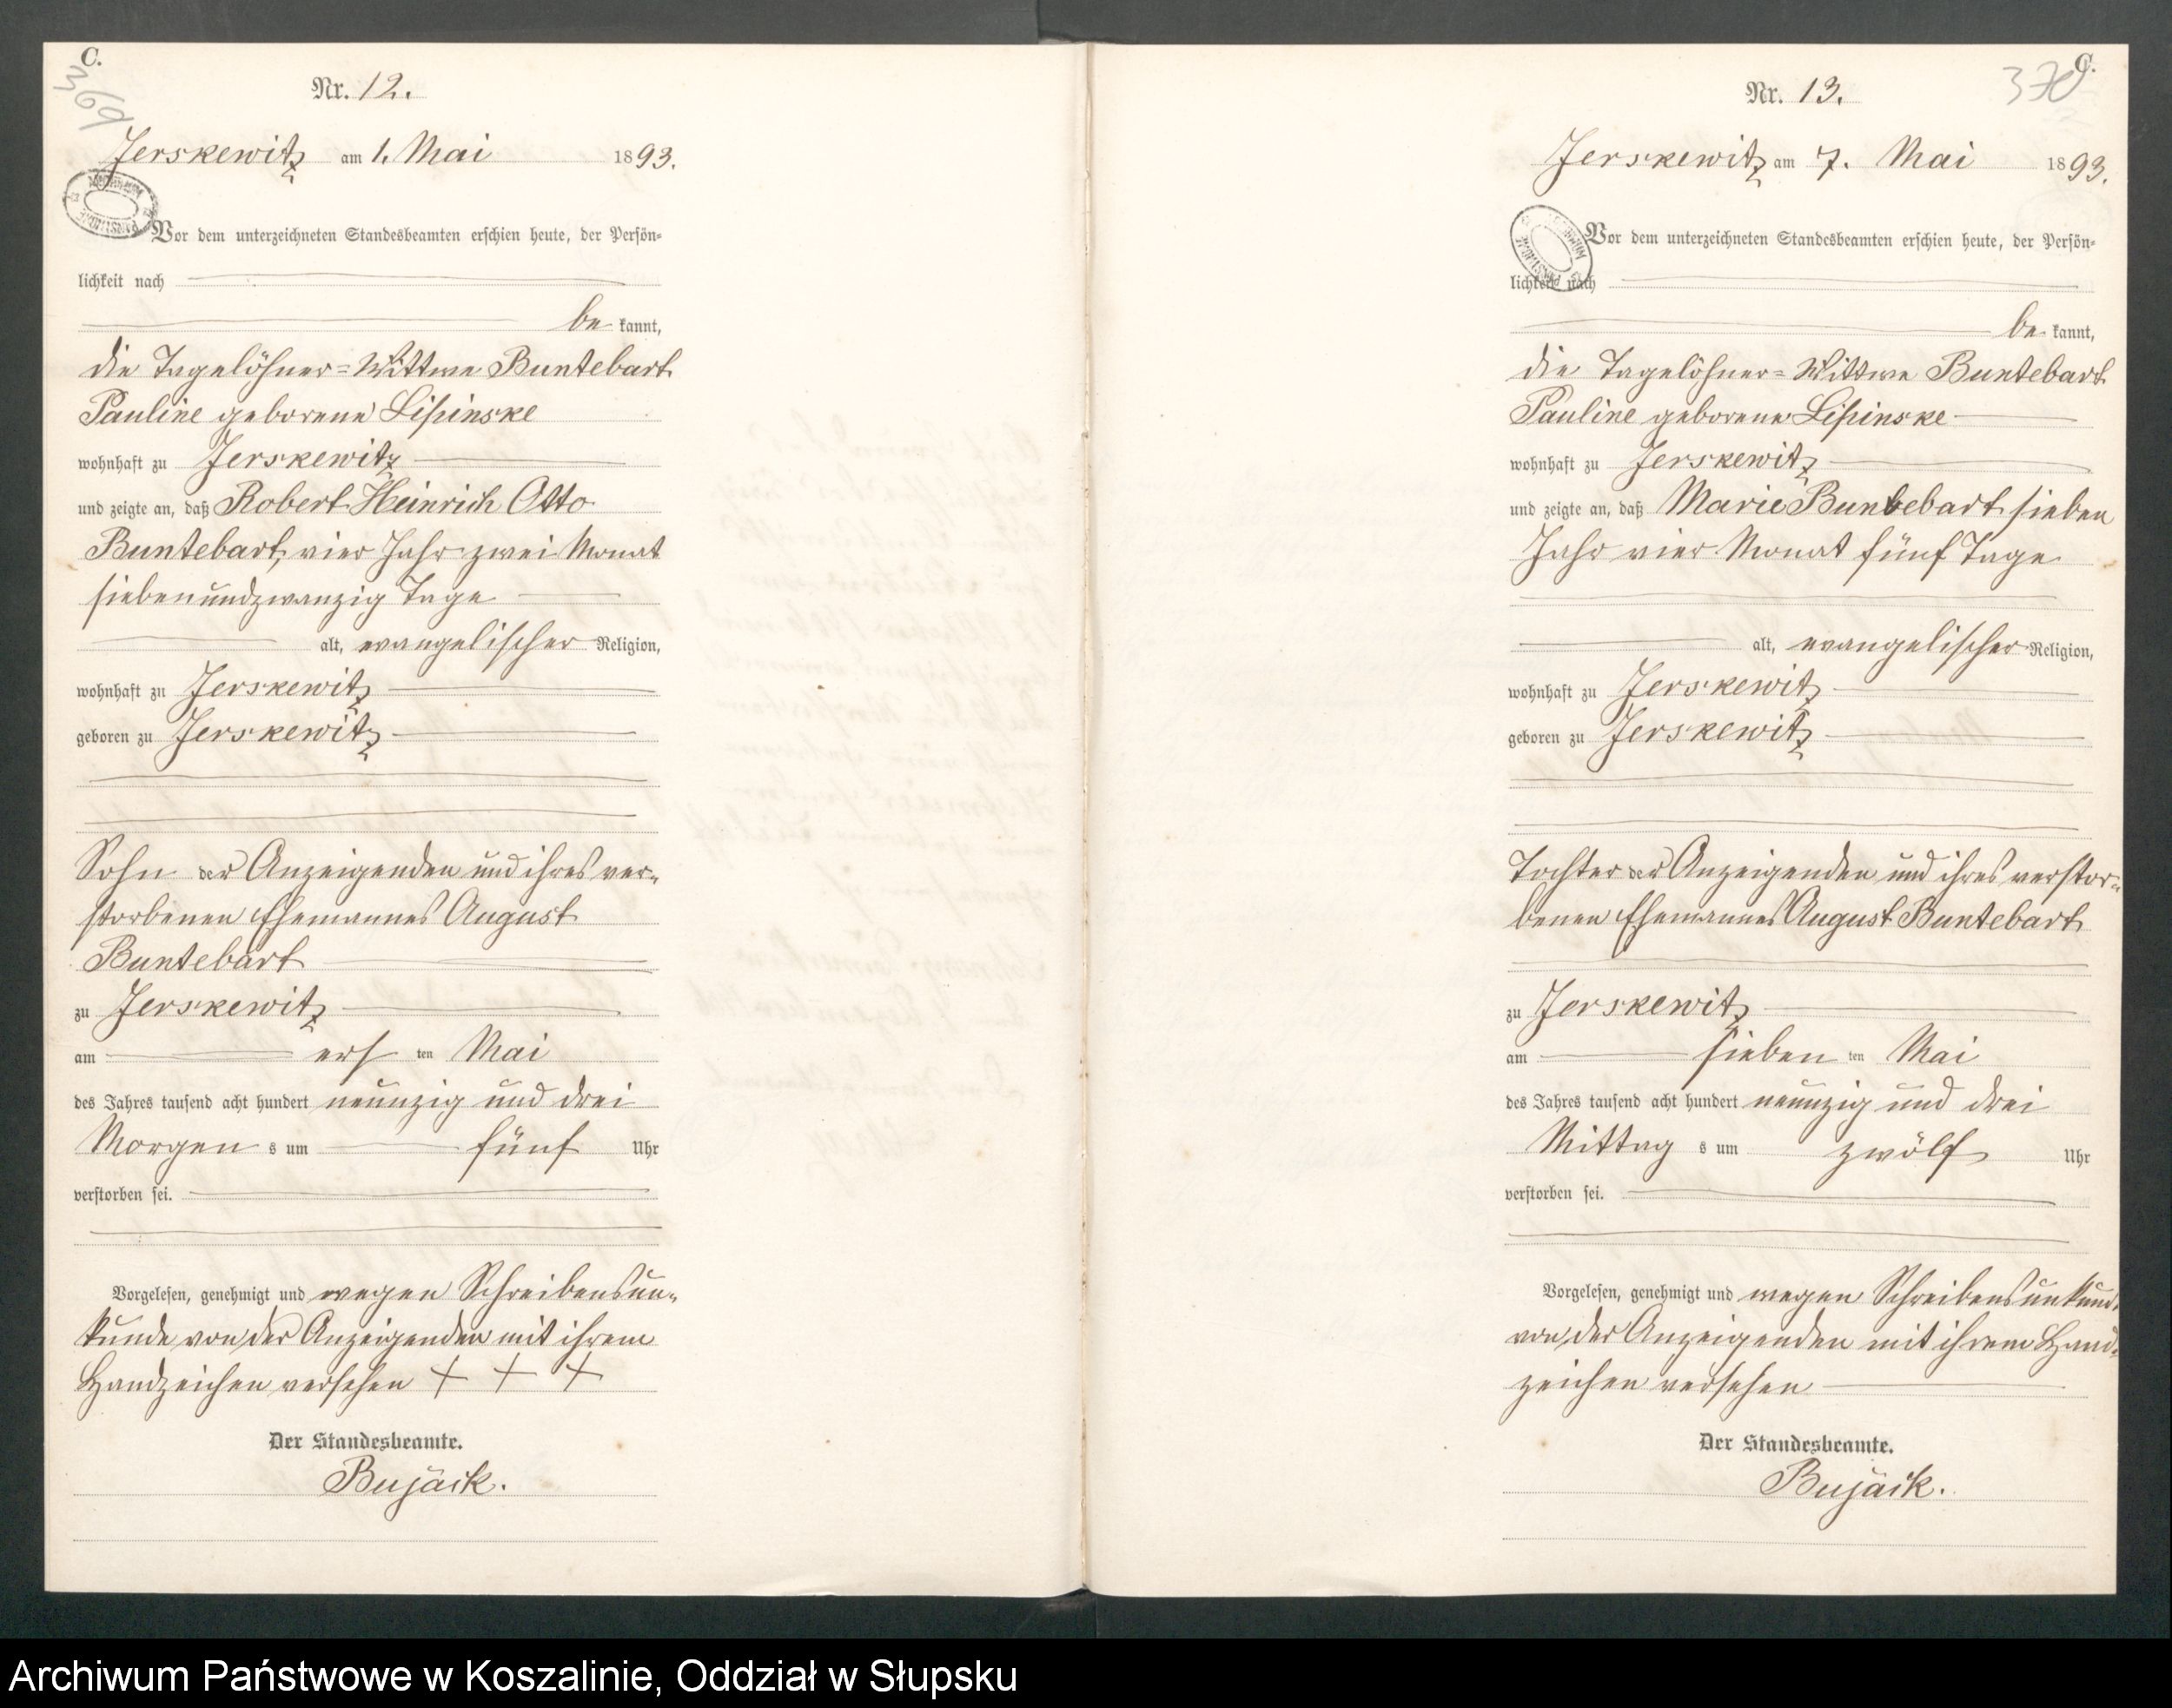 C.
369
Nr. 12.
Jerskewitz am 1. Mai 1893.
Vor dem unterzeichneten Standesbeamten erschien heute, der Persön-
lichkeit nach
be kannt,
die Tagelöhner-Wittwe Buntebart
Pauline geborene Lipinske
wohnhaft zu Jerskewitz
und zeigte an, daß Robert Heinrich Otto
Buntebart, vier Jahr zwei Monat
siebenundzwanzig Tage
alt, evangelischer Religion,
wohnhaft zu Jerskewitz
geboren zu Jerskewitz
Sohn der Anzeigenden und ihres ver-
storbenen Ehemannes August
Buntebart
zu Jerskewitz
am ersten Mai
des Jahres tausend acht hundert neunzig und drei
Morgens um fünf Uhr
verstorben sei.
Vorgelesen, genehmigt und wegen Schreibensun-
kunde von der Anzeigenden mit ihrem
Handzeichen versehen + + +
Der Standesbeamte.
Bujack.
C.
370
Nr. 13.
Jerskewitz am 7. Mai 1893.
Vor dem unterzeichneten Standesbeamten erschien heute, der Persön-
lichkeit nach
be kannt,
die Tagelöhner-Wittwe Buntebart
Pauline geborene Lipinske
wohnhaft zu Jerskewitz
und zeigte an, daß Marie Buntebart sieben
Jahr vier Monat fünf Tage
alt, evangelischer Religion,
wohnhaft zu Jerskewitz
geboren zu Jerskewitz
Tochter der Anzeigenden und ihres verstor-
benen Ehemannes August Buntebart
zu Jerskewitz
am siebenten Mai
des Jahres tausend acht hundert neunzig und drei
Mittags um zwölf Uhr
verstorben sei.
Vorgelesen, genehmigt und wegen Schreibensunkund.
von der Anzeigenden mit ihrem Hand-
zeichen versehen
Der Standesbeamte.
Bujack.
Archiwum Państwowe w Koszalinie, Oddział w Słupsku